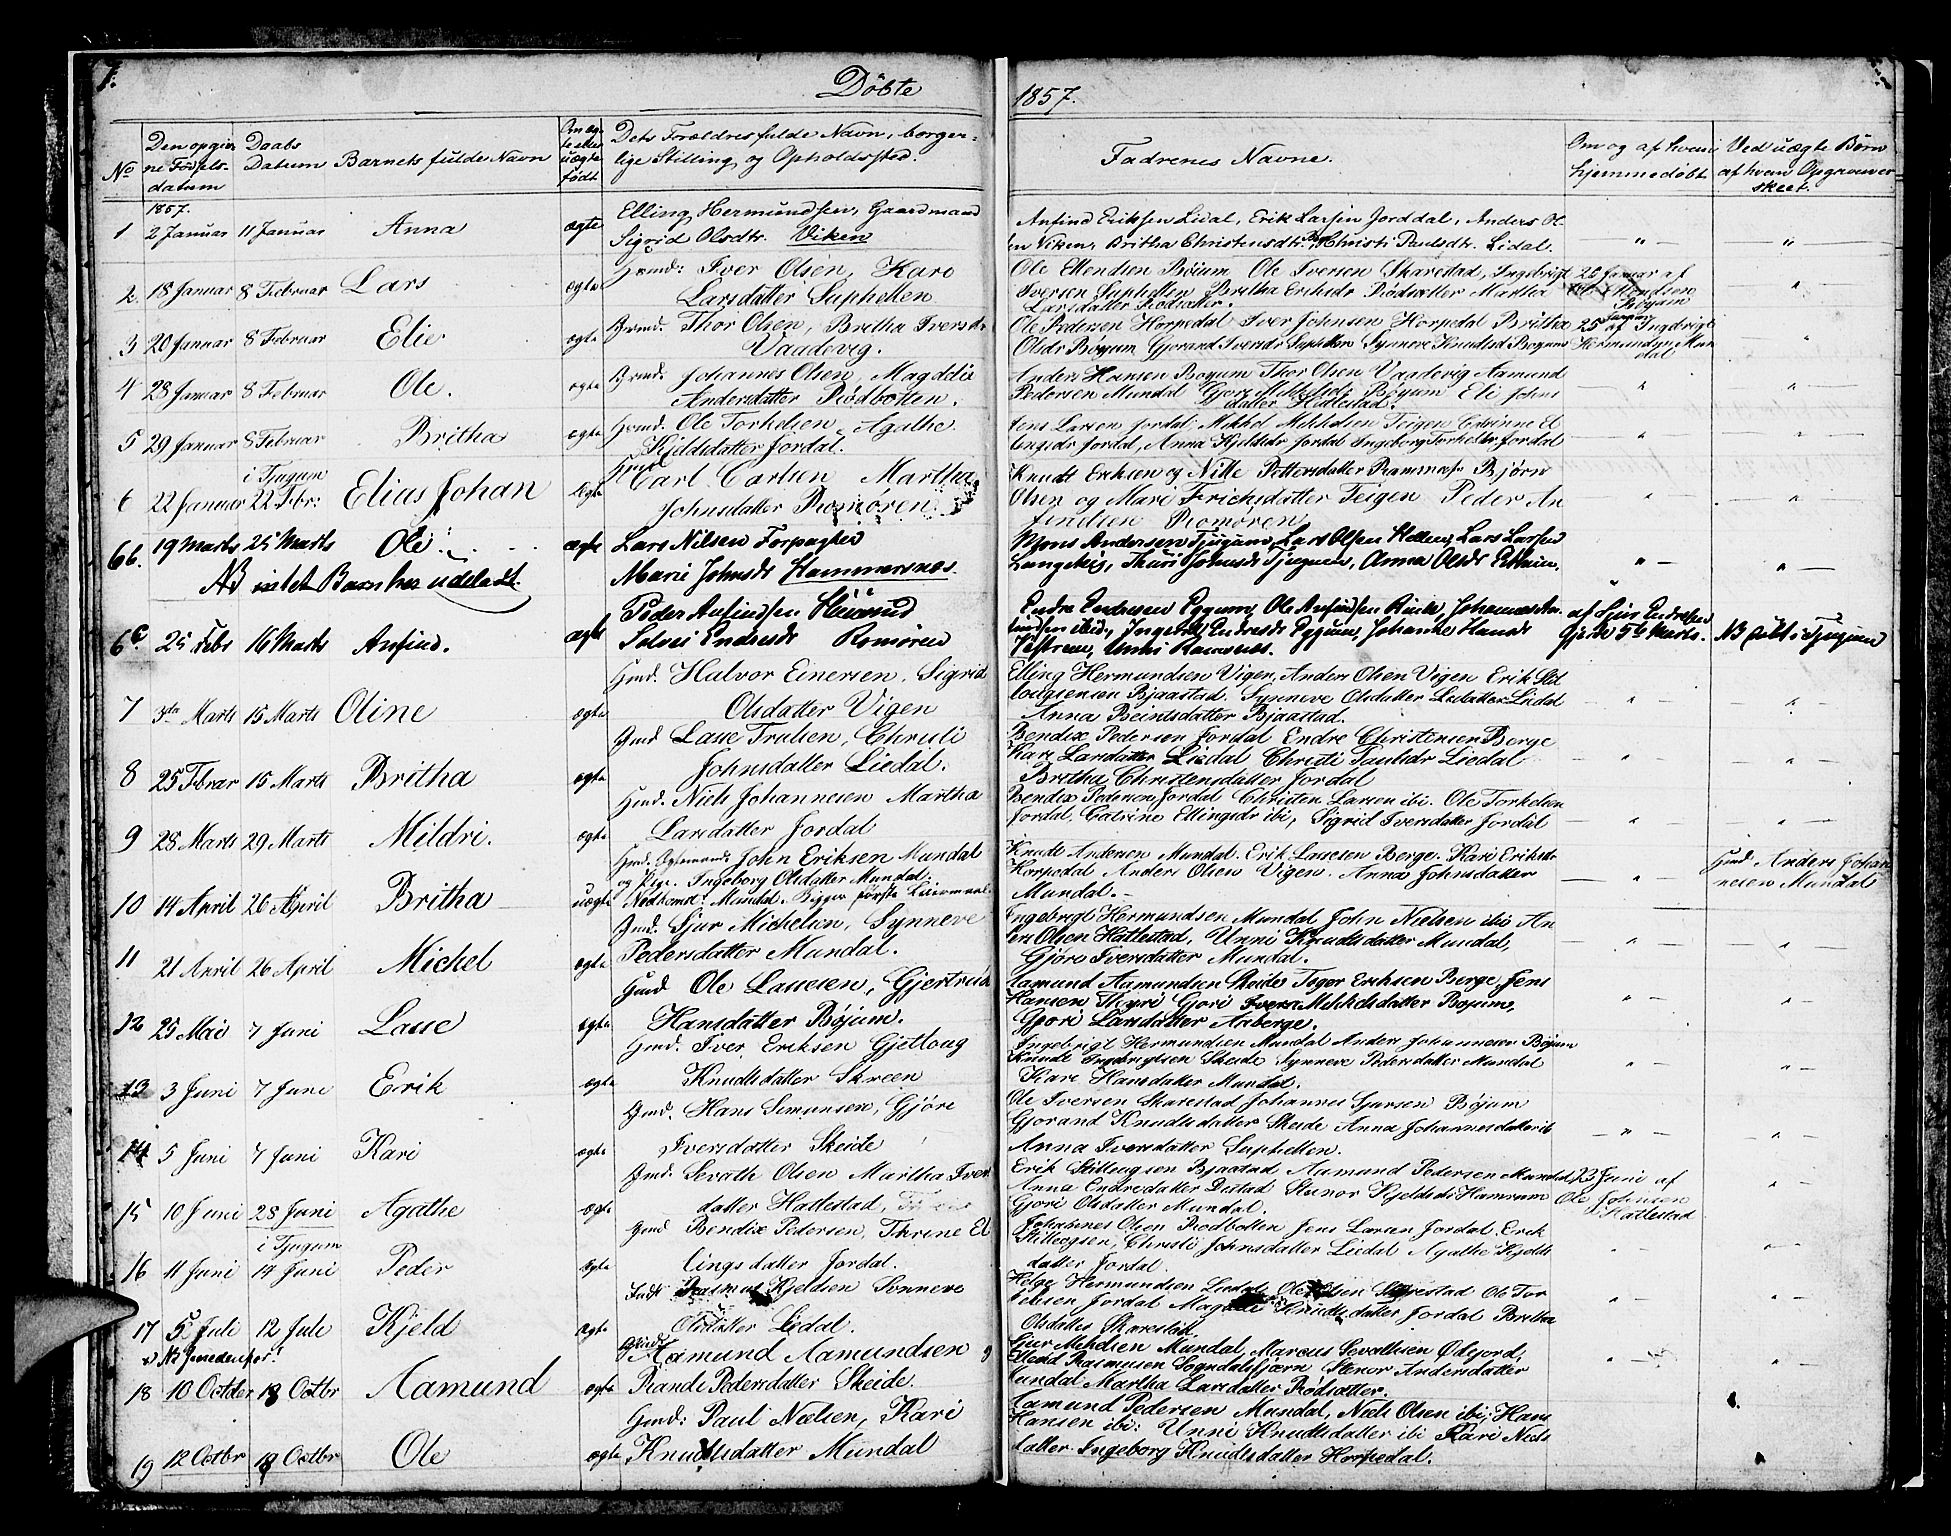 7.
Döbte 1857.
No
Den opgiv-
ne Fødsels-
datum
Daabs
Datum
Barnets fulde Navn
Om æg-
te eller
uægte
født
Dets Forældres fulde Navn, borger-
lige Stilling, og Opholdssted.
Fadrenes Navne.
Om og af hvem
hjemmedøbt
Ved uægte Børn
af hvem Opgaven er
skeet.
1857.
1 2 Januar 11 Januar Anna ægte Elling Hermundsen, Gaardmand
Sigrid Olsdtr. Viken
Anfind Eriksen Lidal, Erik Larsen Jorddal, Anders Ol-
sen Viken, Britha Christensdtr. Christi Paulsdtr. Lidal.
2. 18 Januar 8 Februar Lars ægte Gmd: Iver Olsen, Kari
Larsdatter Suphellen
Ole Ellendsen Bøium Ole Iversen Skarestad, Ingebrigt
Iversen Suphellen Britha Eriksdr Rødsætter Martha
Larsdatter Rødsætter.
20 Januar af
Ole Ellendsen
Bøyum
3 20 Januar 8 Februar Elie ægte Brmd. Thor Olsen, Britha Iversdr
Vaadevig.
Ole Pedersen Horpedal Iver Johnsen Horpedal Britha
Olsdr Bøyum Gjorand Iversdr Suphellen Synneve Knudtsd Boyum
25 Januar af Ingebrigt
Hermundsen Mun
dal
4 28 Januar 8 Februar Ole. ægte Brmd. Johannes Olsen, Magdelie
Andersdatter Rødbotten.
Anders Hansen Boyum Thor Olsen Vaadevig Aamund
Pedersen Mundal Gjori Mikkelsdr Bøyum Eli Johns
datter Hatlestad.
5 29 Januar 8 Februar Britha ægte Gmd. Ole Torkelsen, Agathe
Kjeldsdatter Jordal.
Jens Larsen Jordal, Mikkel Mikkelsen Teigen Cathrine El
lingsdr Jordal, Anna Kjeldsdr Jordal Ingeborg Torkelsdr. Jordal
6 22 Januar i Tjugum
22 Febr: Elias Johan Ægte Gmd Carl Carlsen Martha
Johnsdatter Romøren
Knudt Eriksen og Nille Pettersdatter Ramnæs Bjørn
Olsen og Mari Frichsdatter Teigen Peder An
findsen Romøren
6b. 19 Marts 25 Marts Ole ægte Lars Nilsen Forpagter
Marie Johnsdr Hammersnæs.
NB intet Barn her udeladt.
Mons Andersen Tjugum, Lars Olsen Hellen, Lars Larsen
Langekeg, Thuri Johnsdr Tjugum, Anna Olsdr Ettum.
6c. 25 Febr 16 Marts Anfind. ægte Peder Anfindsen Huusmd
Solvei Endresdr Romøren
Endre Endresen Eggum, Ole Anfindsen Rinde, Johannes An-
findsen ibid, Ingerid Endresdr Eggum, Johanne Hansdr
Vestrem, Unni Ramsnæs.
af Sjur Endresen
Gjerde 5te Marts.
NB døbt i Tjugum
7 3die Marts 15 Marts Oline ægte Gmd. Halvor Einersen, Sigrid
Olsdatter Vigen
Elling Hermundsen Vigen, Anders Olsen Vigen Erik Stil
lougsensen Bjaastad. Synneve Olsdatter Lidal
Anna Beintsdatter Bjaastad.
8 25 Febrar 15 Marts Britha ægte Gmd Lasse Trulsen, Christi
Johnsdatter Liedal.
Bendix Pedersen Jordal Endre Christensen Berge
Kari Larsdatter Liedal Christi Paulsdr Liedal
Britha Christensdatter Jordal
9 28 Marts 29 Marts Mildri. ægte Gmd. Niels Johannesen Martha
Larsdatter Jordal
Bendix Pedersen Jordal Christen Larsen ibi. Ole Torkelsen
Jordal, Catrine Ellingsdr ibi, Sigrid Iversdatter Jordal
10 14 April 26 April Britha uægte Gmd. John Eriksen Mundal
og Pige Ingeborg Olsdatter Mundal.
Knudt Andersen Mundal. Erik Lassesen Berge. Kari Eriksdr
Horpedal Anders Olsen Vigen. Anna Johnsdatter
Mundal.
Gmd. Anders Johan
nesen Mundal
11 21 April 26 April Michel ægte Gmd. Sjur Michelsen, Synneve
Pedersdatter Mundal.
Ingebrigt Hermundsen Mundal John Nielsen ibi An
ders Olsen Hatlestad, Unni Knudtsdatter Mundal,
Gjøre Iversdatter Mundal.
12 25 Mai 7 Juni Lasse ægte Gmd Ole Lassesen, Gjertrud
Hansdatter Bøjum.
Aamund Aamundsen Skeide Torger Eriksen Berge, Jens
Hansen Thyri Gjori Mikkelsdatter Bojum,
Gjori Larsdatter Aaberge.
13 3 Juni 7 Juni Erik ægte Gmd. Iver Eriksen Gjetloug
Knudtsdatter Skreen
Ingebrigt Hermundsen Mundal Anders Johannesen Bøjum
Knudt Ingebrigtsen Skeide Synneve Pedersdatter Mundal
Kari Hansdatter Mundal.
14 5 Juni 7 Juni Kari ægte Gmd. Hans Simunsen, Gjøre
Iversdatter Skeide
Ole Iversen Skarestad Johannes Sjursen Bøjum
Gjorand Knudtsdatter Skeide Anna Johannesdatter ib
Anna Iversdatter Suphellen.
15 10 Juni 28 Juni Agathe ægte Gmd. Sevath Olsen Martha Iver
datter Hatlestad,
Erik Stillougsen Bjaastad Aamund Pedersen Mundal,
Anna Endresdatter Distad Steinor Kjeldsdr Hamrum
Gjori Olsdatter Mundal.
23 Juni af
Ole Johnsen
Hatlestad
16 11 Juni i Tjugum
14 Juni Peder ægte Gmd Bendix Pedersen, Thrine El
lingsdatter Jordal.
Johannes Olsen Rodbotten Jens Larsen Jordal. Erik
Stillougsen, Christi Johnsdatter Liedal Agathe Kjelds
datter Jordal.
17 5 Juli 12 Jule Kjeld Ægte Rasmus Kjeldsen Sonneve
Olsdatter Liedal.
Helge Hermundsen Liedal Ole Olsen Skarestad Ole Tor
kelsen Jordal Magdele Knudtsdatter Jordal Britha
Olsdatter Skarestad.
NB see nedenfor!
18 10 October 18 Octbr Aamund ægte Aamund Aamundsen og
Randi Pedersdatter Skeide.
Sjur Mikelsen Mundal, Marcus Sevathsen Ødejord,
Ellend Rasmusen Sogndalsfjæren Stenor Andersdatter
Mundal Martha Larsdatter Rødsætter.
19 12 Octbr 18 Octbr Ole ægte Gmd: Paul Nielsen, Kari
Knudtsdatter Mundal
Aamund Pedersen Mundal, Niels Olsen ibi, Hans
Hansen ibi: Unni Knudtsdatter ibi Kari Niels
datter Ingeborg Knudtsdatter Horpedal.